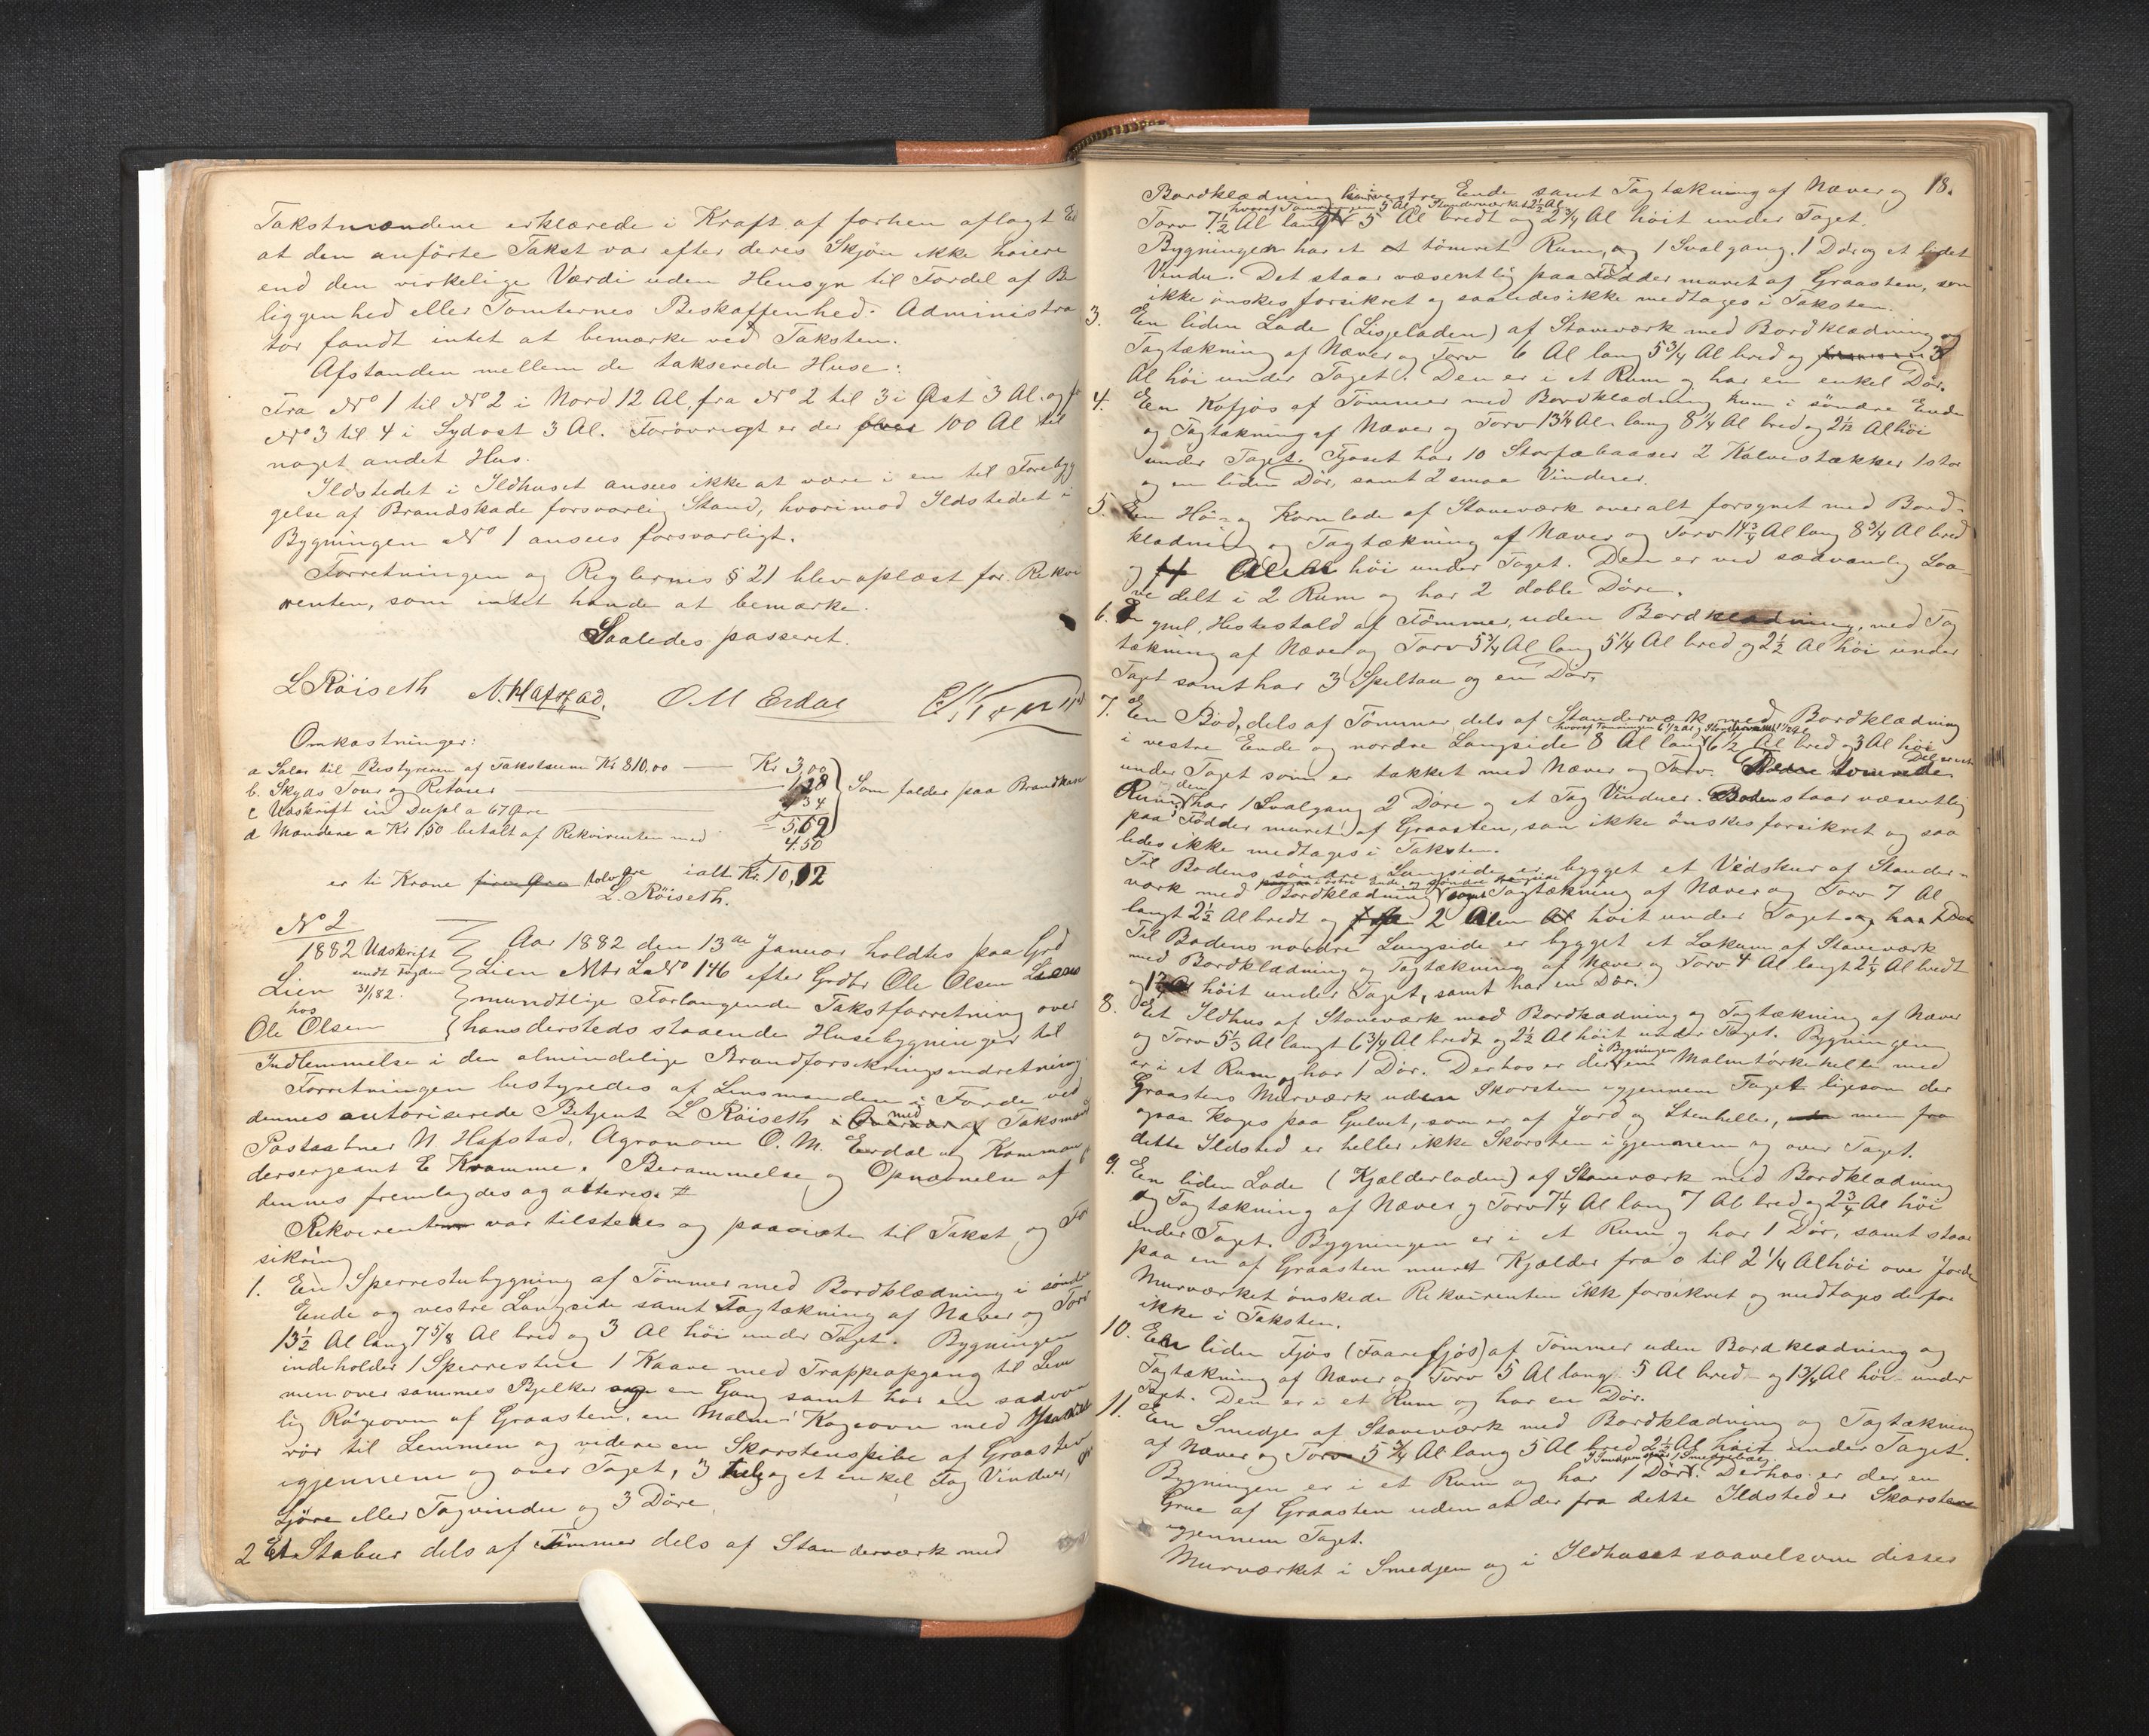 Takstmændene erklærede i Kraft af forhen aflagt Ed
at den anførte Takst var efter deres Skjøn ikke høiere
end den virkelige Værdi uden Hensyn til Fordel af Be
liggenhed eller Tomternes Beskaffenhed. Administra
tor fandt intet at bemærke ved Taksten.
Afstanden mellem de takserede Huse:
Fra No 1 til No 2 i Nord 12 Al. fra No 2 til 3 i Øst 3 Al. og fr
No 3 til 4 i Sydost 3 Al. Forøvrigt er der over 100 Al til
noget andet Hus.
Ildstedet i Ildhuset ansees ikke at være i en til Forebyg
gelse af Brandskade forsvarlig Stand, hvorimod Ildstedet i
Bygningen No 1 ansees forsvarligt.
Forretningen og Reglernes § 21 blev oplæst for Rekvi
renten, som intet havde at bemærke.
Saaledes passeret.
L Röiseth N. Hafstad. O M Erdal
Omkostninger:
a Salær til Bestyreren af Takstsum Kr 810,00 — Kr 3,00
b. Skyds Tour og Retour 1,28
c Udskrift in Dupl a 67 Øre 1,34
Som falder paa Brandkase
5,62
d Mændene a Kr 1,50 betalt af Rekvirenten med 4.50
er ti Krone fire Øre tolv Øre ialt Kr. 10,12
L. Röiseth.
No 2
1882 Udskrift
sendt Fogden
31/1 82.
Lien
hos
Ole Olsen
Aar 1882 den 13de Januar holdtes paa Grd
Lien Mtr L No 146 efter Grdbr Ole Olsen Liens
mundtlige Forlangende Takstforretning over
hans dersteds staaende Husebygninger til
Indlemmelse i den almindelige Brandforsikringsindretning.
Forretningen bestyredes af Lensmanden i Førde ved
dennes autoriserede Betjent L Röiseth med Taksmænd
Postaabner N. Hafstad, Agronom O. M. Eerdal og Komman
dersergeant E Kromme. Berammelse og Opnævnelse af
dennes fremlagdes og atteres.
Rekvirenten var tilstede og paaviste til Takst og For
sikring
1. En Sperrestubygning af Tømmer med Bordklædning i søndre
Ende og vestre Langside samt Tagtækning af Næver og Torv
13½ Al lang 7 5/8 Al bred og 3 Al høi under Taget. Bygningen
indeholder 1 Sperrestue 1 Kaave med Trappeopgang til Lem
men over sammes Bjelker og en Gang samt har en sædvan
lig Røgeovn af Graasten, en Malm-Kogeovn med
rør til Lemmen og videre en Skorstenspibe af Graasten
igjennem og over Taget, 3 hele og et enkel Fag Vinduer,
Ljøre eller Tagvindu og 3 Døre.
2 Et Stabur dels af Tømmer dels af Standerværk med
18.
Bordklædning i vestre Ende samt Tagtækning af Næver og
hvoraf Tømringen 5 Al og Standerværket 2½ Al
Torv 7½ Al langt 5 Al bredt og 2¾ Al høit under Taget.
Bygningen har et tømret Rum, og 1 Svalgang, 1 Dør og et lidet
Vindu. Det staar væsentlig paa Fødder muret af Graasten, som
ikke ønskes forsikret og saaledes ikke medtages i Taksten.
3. En liden Lade (Lisjeladen) af Staveværk med Bordklædning og
Tagtækning af Næver og Torv 6 Al lang 5¾ Al bred og 3
Al høi under Taget. Den er i et Rum og har en enkel Dør.
4. En Kofjøs af Tømmer med Bordklædning kun i søndre Ende
og Tagtækning af Næver og Torv 13¼ Al. lang 8¼ Al bred og 2½ Al høi
under Taget. Fjøset har 10 Storfæbaaser 2 Kalvestækker 1 stor
og en liden Dør, samt 2 smaa Vinduer.
5. En Hø- og Kornlade af Staveværk overalt forsynet med Bord-
klædning og Tagtækning af Næver og Torv 14¾ Al lang 8¾ Al bred
og Alen høi under Taget. Den er ved sædvanlig Loa-
ve delt i 2 Rum og har 2 doble Døre.
6. En gml. Hestestald af Tømmer, uden Bordklædning, med Tag
tækning af Næver og Torv 5¾ Al lang 5¼ Al bred og 2½ Al høi under
Taget samt har 3 Speltau og en Dør.
7. En Bod, dels af Tømmer, dels af Standerværk med Bordklædning
hvoraf Tømringen 6½ Al og Standerværket 1½ Al
i vestre Ende og nordre Langside 8 Al lang 6½ Al bred og 3 Al høi
under Taget som er tækket med Næver og Torv. Den er
Rum, den har 1 Svalgang 2 Døre og et Fag Vinduer. Boden staar væsentlig
paa Fødder muret af Graasten, som ikke ønskes forsikret og saa
ledes ikke medtages i Taksten.
Til Bodens søndre Langside er bygget et Vedskur af Stander-
værk med Bordklædning samt Tagtækning af Næver og Torv 7 Al
langt 2½ Al bredt og 2 Alen høit under Taget og har 1 Dør
Til Bodens nordre Langside er bygget et Lokum af Staveværk
med Bordklædning og Tagtækning af Næver og Torv 4 Al langt 2¼ Al bredt
og høit under Taget, samt har en Dør.
8. Et Ildhus af Staveværk med Bordklædning og Tagtækning af Næver
og Torv 5½ Al langt 6¾ Al bredt og 2½ Al høit under Taget. Bygningen
er i et Rum og har 1 Dør. Derhos er der i Bygningen en Malmtørkehelle med
Graastens Murværk uden Skorsten igjennem Taget ligesom der
ogsaa koges paa Gulvet, som er af Jord og Stenheller, men fra
dette Ildsted er heller ikke Skorsten igjennem og over Taget.
9. En liden Lade (Kjælderladen) af Staveværk med Bordklædning
og Tagtækning af Næver og Torv 7¼ Al lang 7 Al bred og 2¾ Al høi
under Taget. Bygningen er i et Rum og har 1 Dør, samt staar
paa en af Graasten muret Kjælder fra 0 til 2¼ Al høi over Jorden
Murværket ønskede Rekvirenten ikke forsikret og medtages derfor
ikke i Taksten.
10. En liden Fjøs (Faarefjøs) af Tømmer uden Bordklædning og
Tagtækning af Næver og Torv 5 Al lang 5 Al bred og 1¾ Al høi under
Taget. Den er i et Rum og har en Dør.
11. En Smedje af Staveværk med Bordklædning og Tagtækning
af Næver og Torv 5¾ Al lang 5 Al bred 2½ Al høit under Taget.
Bygningen er i et Rum og har 1 Dør. Derhos er der en
Grue af Graasten uden at der fra dette Ildsted er Skorsten
igjennem Taget.
Murværket i Smedjen og i Ildhuset saavelsom disses